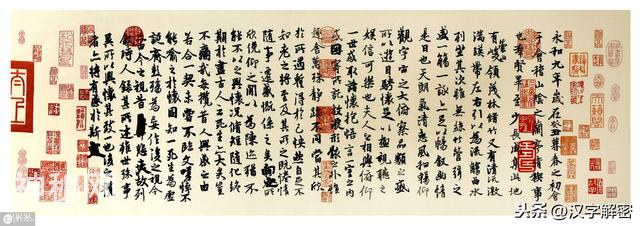 永和九年歲在癸丑暮春之初會
于會稽山陰之蘭亭脩稧事
也群賢畢至少長咸集此地
有崇山峻領茂林脩竹又有清流激
湍暎帶左右引以為流觴曲水
列坐其次雖無絲竹管弦之
盛一觴一詠亦足以暢敘幽情
是日也天朗氣清惠風和暢仰
觀宇宙之大俯察品類之盛
所以遊目騁懷足以極視聽之
娛信可樂也夫人之相與俯仰
一世或取諸懷抱悟言一室之內
或因寄所託放浪形骸之外雖
趣舍萬殊靜躁不同當其欣
於所遇暫得於己快然自足不
知老之將至及其所之既惓情
隨事遷感慨係之矣向之所
欣俛仰之閒以為陳迹猶不
能不以之興懷況脩短隨化終
期於盡古人云死生亦大矣豈
不痛哉每攬昔人興感之由
若合一契未嘗不臨文嗟悼不
能喻之於懷固知一死生為虛
誕齊彭殤為妄作後之視今
亦由今之視昔悲夫故列
敘時人錄其所述雖世殊事
異所以興懷其致一也後之攬
者亦將有感於斯文
头条 @汉字解密